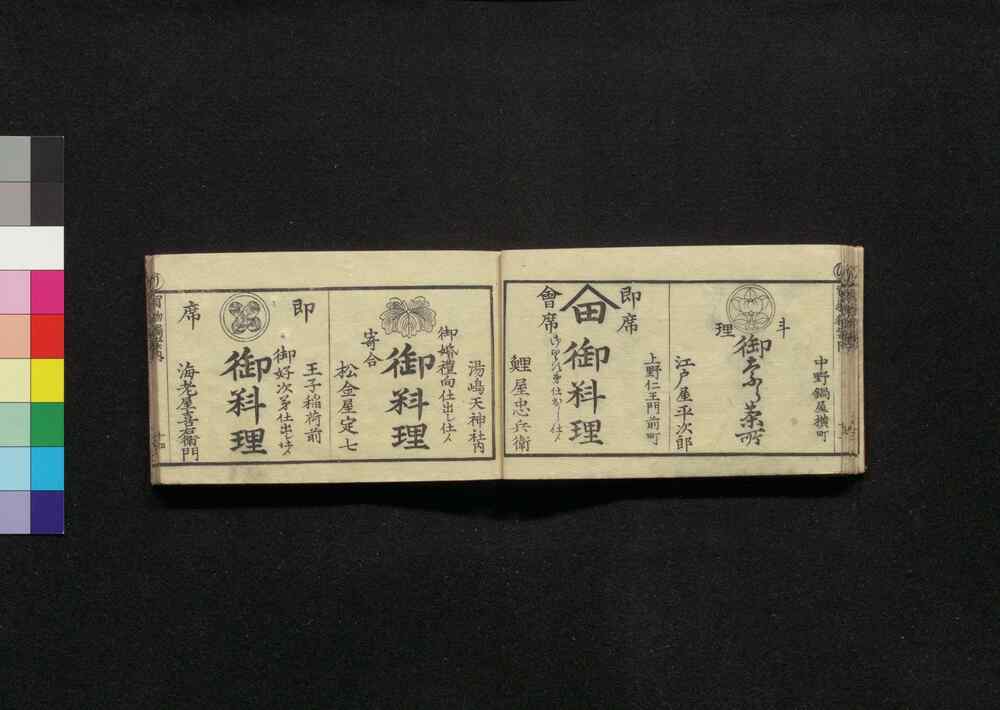 中野鍋屋横町
斗理
御なら茶所
江戸屋平次郎
上野仁王門前町
即席
會席
御料理
鯉屋忠兵衛
湯嶋天神社内
御婚禮向仕出し仕候
御料理
寄合
松金屋定七
王子稲荷前
即席
御好次第仕出し仕候
御料理
海老屋喜右衛門
十四